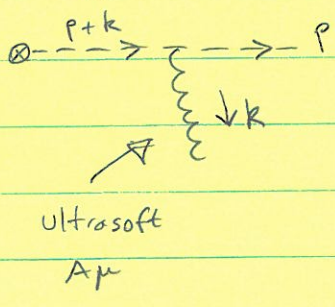 p+k
p
k
Ultrasoft
Aμ